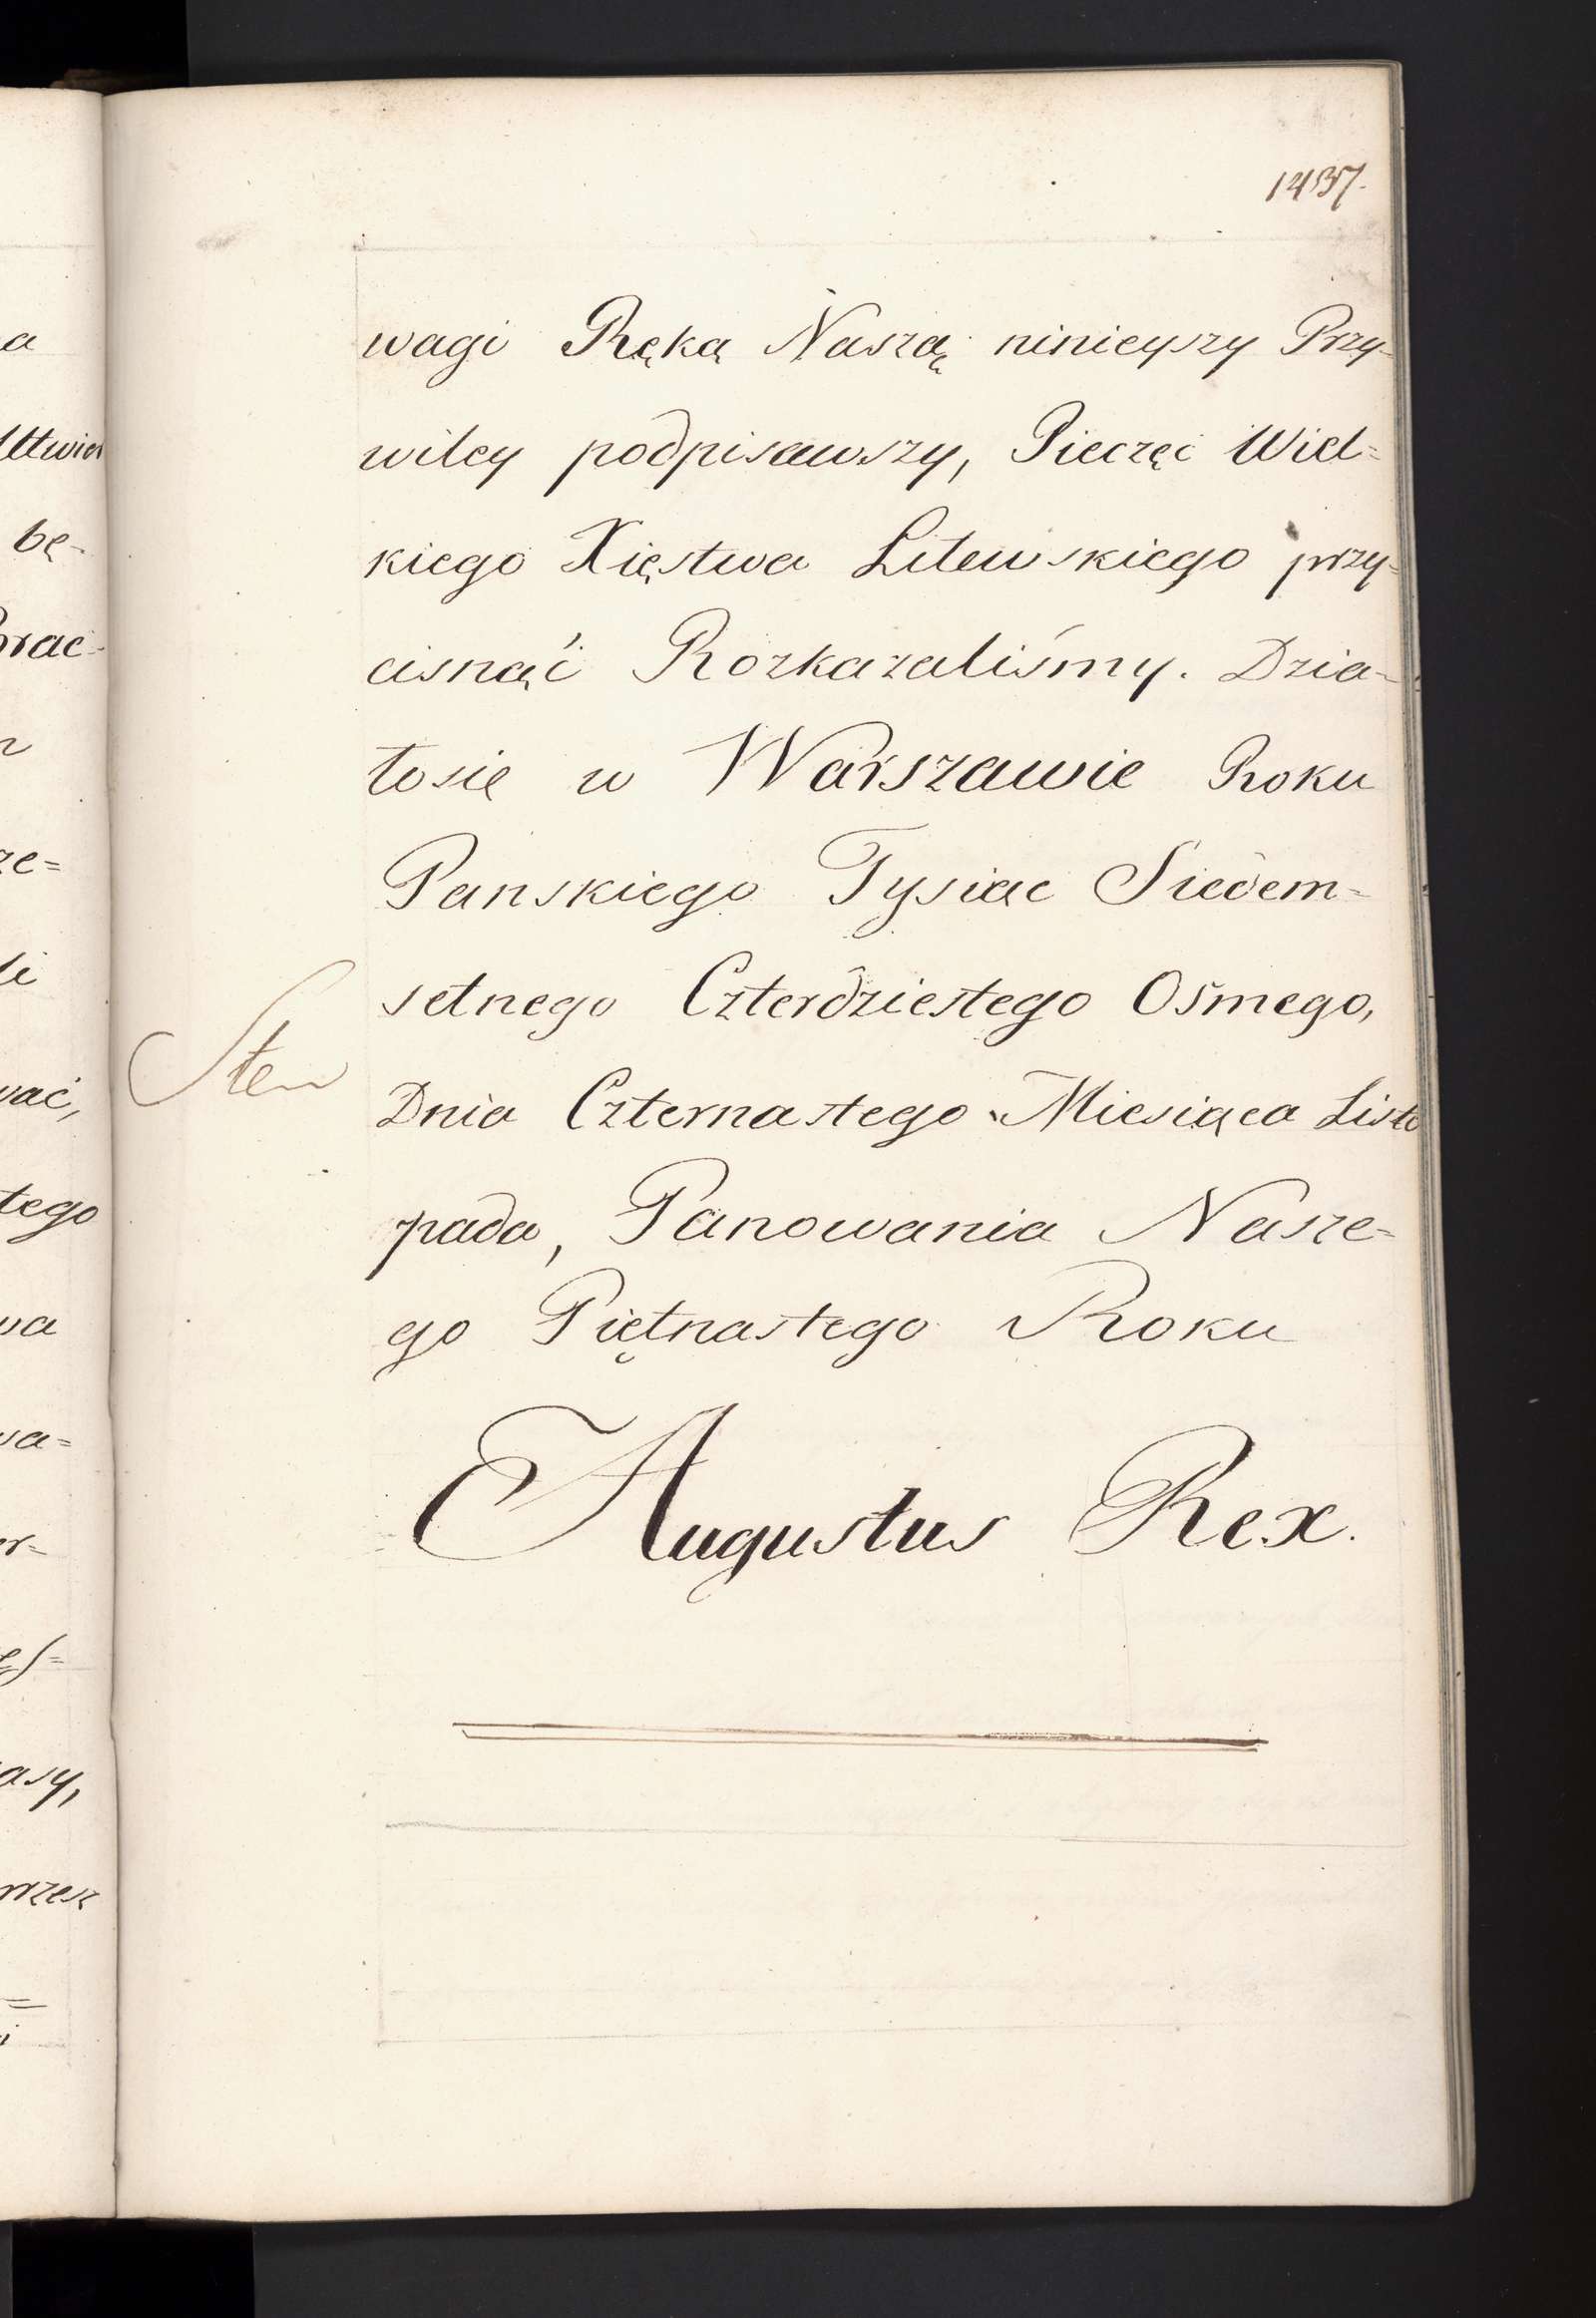 1437.
wagi Ręką Naszą ninieyszy Przy-
wiley podpisawszy, Pieczęć Wiel=
kiego Xięstwa Litewskiego przy=
cisnąć Rozkazaliśmy. Dzia-
łosię w Warszawie Roku
Panskiego Tysiąc Siedem=
setnego Czterdziestego Osmego,
Dnia Czternastego Miesiąca Listo
pada, Panowania Nasze=
go Piętnastego Roku
Augustus Rex.
a
bę-
ze=
wać,
tego
wa
wa=
asy,